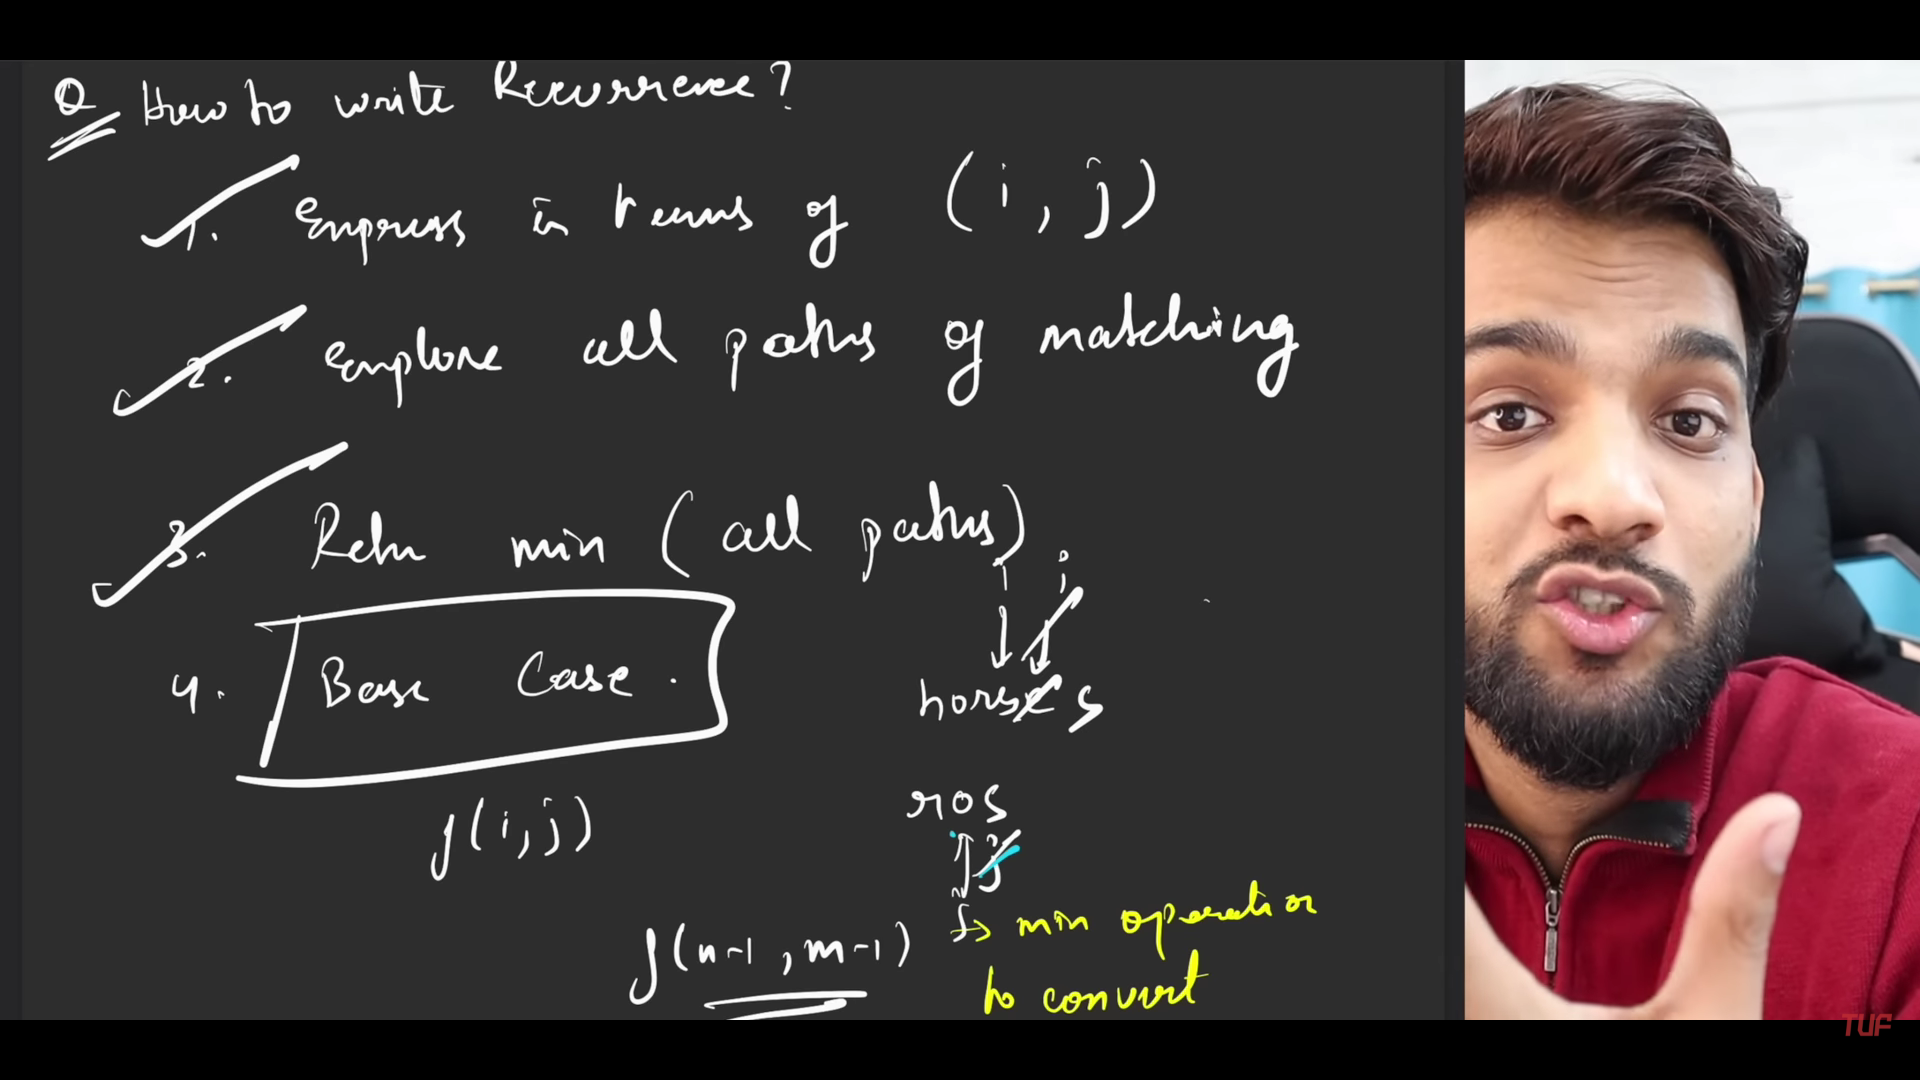 Q How to write Recurrence?
1. Express in terms of (i, j)
2. Explore all paths of matching
3. Return min (all paths)
i j
4. Base Case.
horse s
ros
j
f(i, j)
f(n-1, m-1) → min operation
to convert
TUF